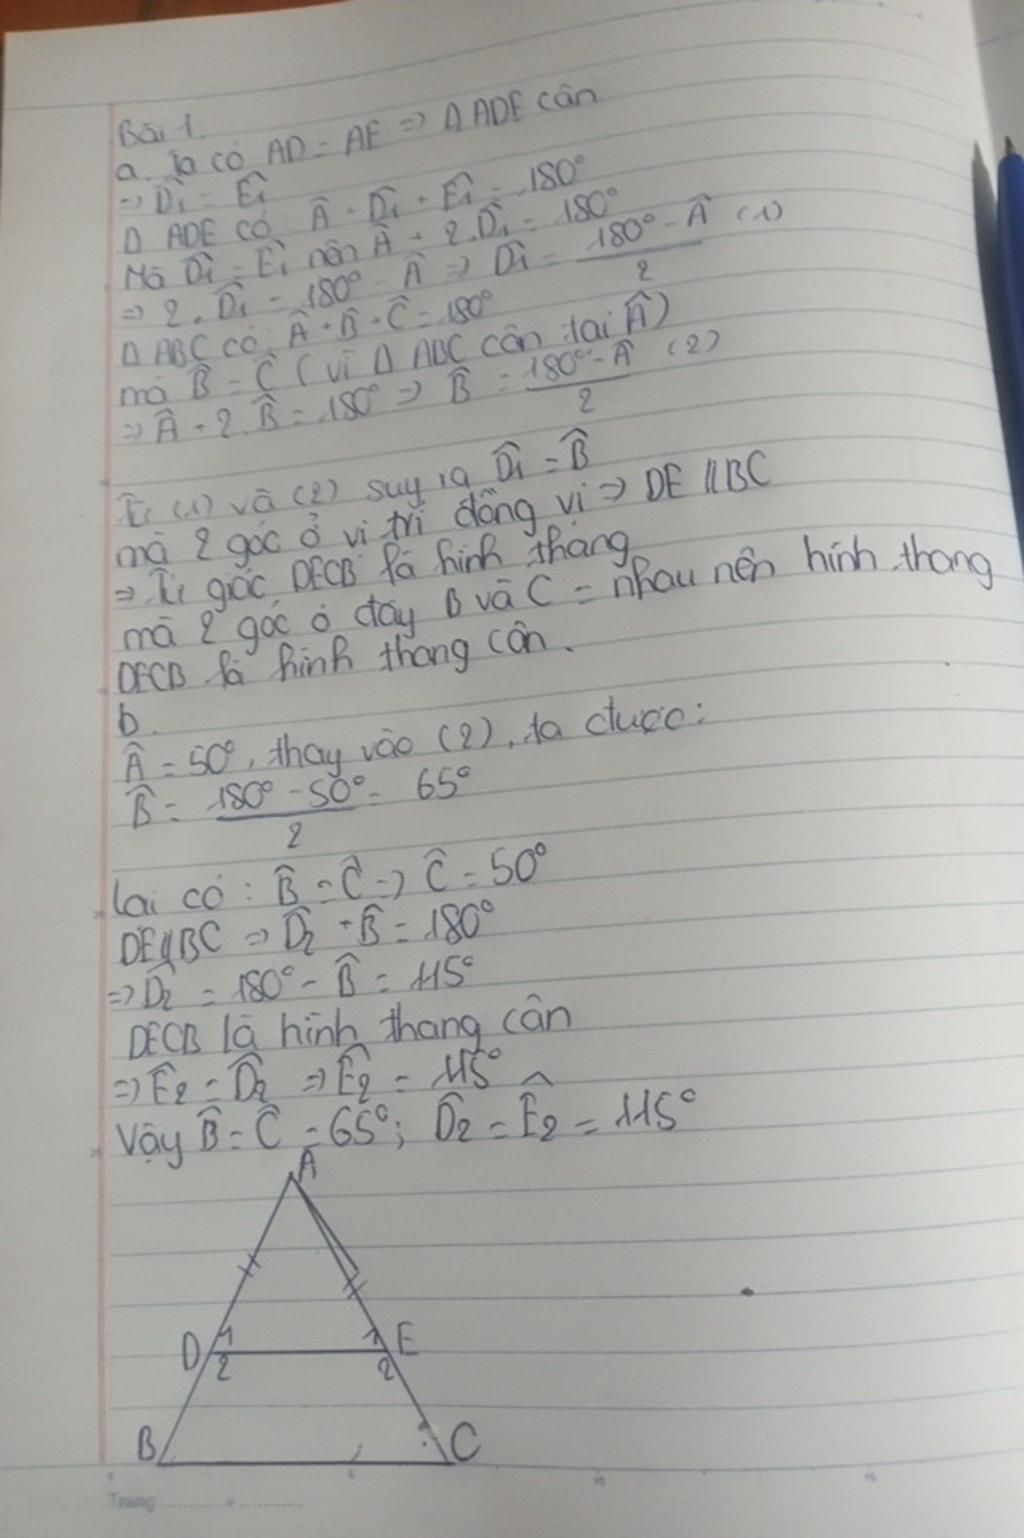 Bài 1.
a. Ta có AD = AE => Δ ADE cân
=> D̂₁ = Ê₁
Δ ADE có Â + D̂₁ + Ê₁ = 180°
Mà D̂₁ = Ê₁ nên Â + 2.D̂₁ = 180°
=> 2.D̂₁ = 180° - Â => D̂₁ = (180° - Â)/2 (1)
Δ ABC có: Â + B̂ + Ĉ = 180°
mà B̂ = Ĉ (vì Δ ABC cân tại Â)
=> Â + 2.B̂ = 180° => B̂ = (180° - Â)/2 (2)
Từ (1) và (2) suy ra D̂₁ = B̂
mà 2 góc ở vị trí đồng vị => DE // BC
=> Tứ giác DECB là hình thang
mà 2 góc ở đáy B và C = nhau nên hình thang
DECB là hình thang cân.
b.
Â = 50°, thay vào (2), ta được:
B̂ = (180° - 50°)/2 = 65°
lại có: B̂ = Ĉ => Ĉ = 50°
DE // BC => D̂₂ + B̂ = 180°
=> D̂₂ = 180° - B̂ = 115°
DECB là hình thang cân
=> Ê₂ = D̂₂ => Ê₂ = 115°
Vậy B̂ = Ĉ = 65°; D̂₂ = Ê₂ = 115°
A
D 1 1 E
2 2
B C
Trang